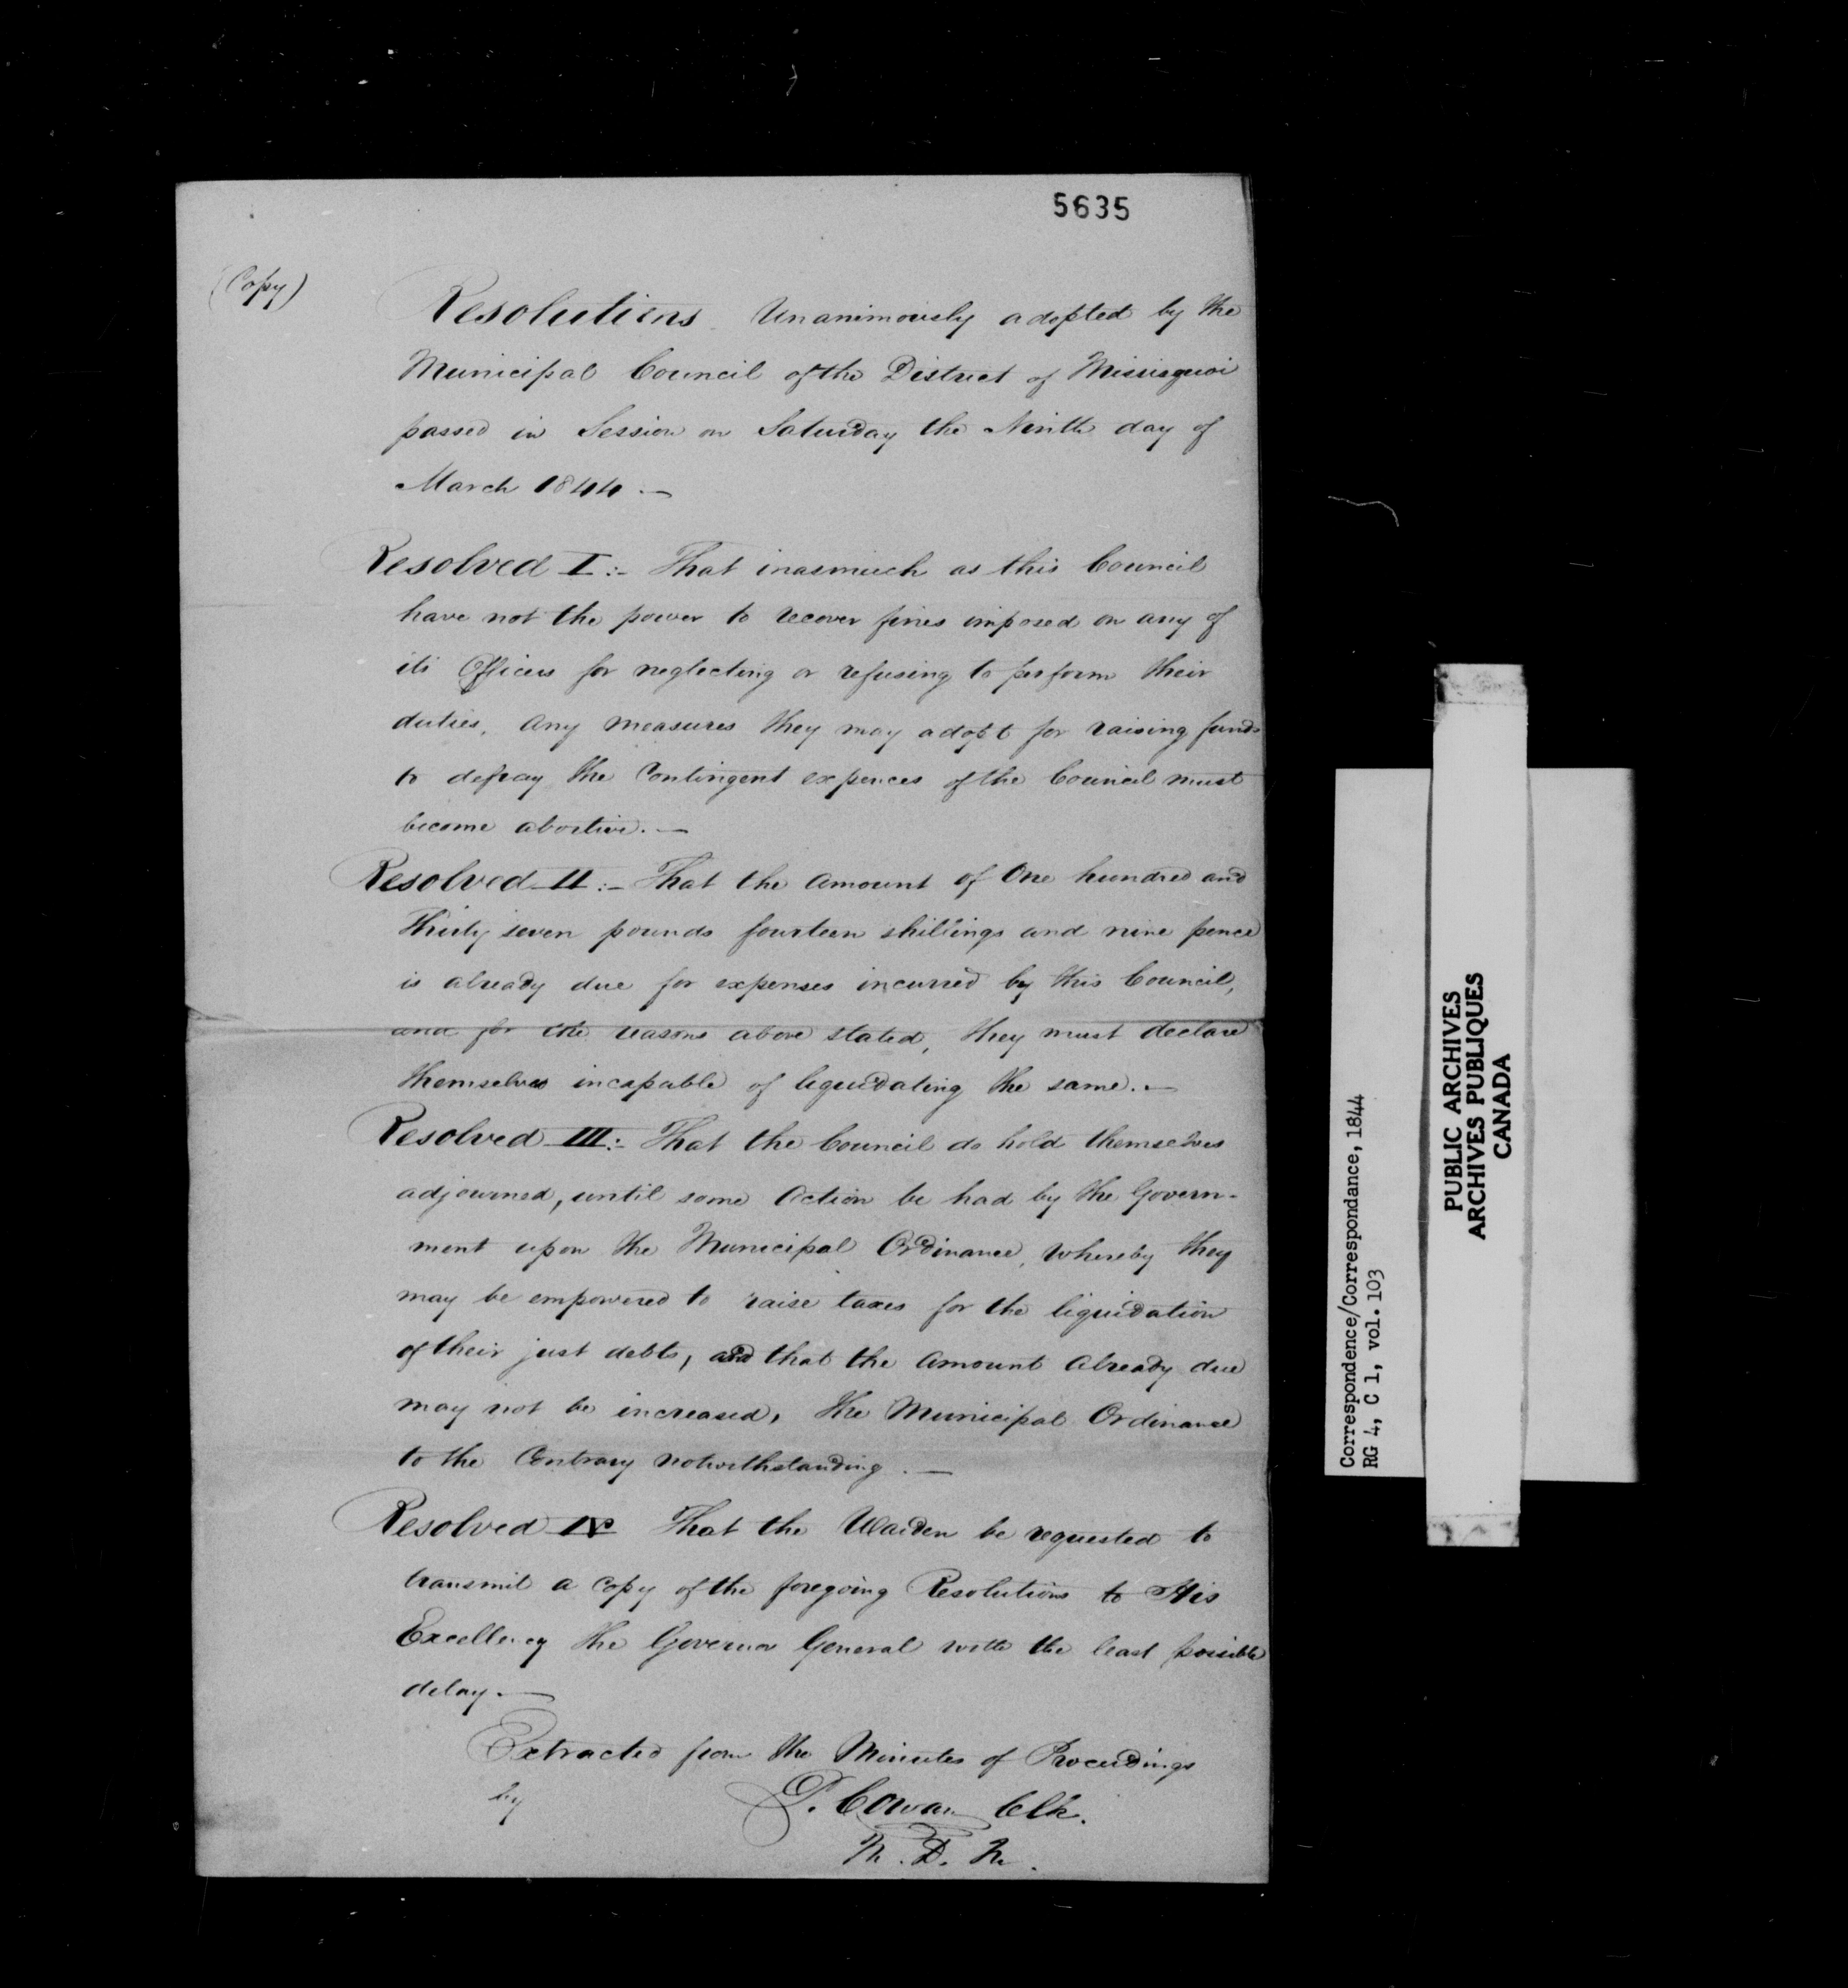 5635
(Copy)
Resolutions Unanimously adopted by the
Municipal Council of the District of Missisquoi
passed in Session on Saturday the Ninth day of
March 1844.—
Resolved I:- That inasmuch as this Council
have not the power to recover fines imposed on any of
its Officers for neglecting or refusing to perform their
duties, any measures they may adopt for raising funds
to defray the Contingent expences of the Council must
become abortive.—
Resolved II:- That the Amount of One hundred and
Thirty seven pounds fourteen shillings and nine pence
is already due for expenses incurred by this Council,
and for the reasons above stated, they must declare
themselves incapable of liquidating the same.—
Resolved III:- That the Council do hold themselves
adjourned, until some Action be had by the Govern-
ment upon the Municipal Ordinance, whereby they
may be empowered to raise taxes for the liquidation
of their just debts, and that the Amount already due
may not be increased, the Municipal Ordinance
to the Contrary notwithstanding.—
Resolved IV That the Warden be requested to
transmit a Copy of the foregoing Resolutions to His
Excellency the Governor General with the least possible
delay.—
Extracted from the Minutes of Proceedings
by P. Cowan Clk.
M. D. M.
Correspondence/Correspondance, 1844
RG 4, C 1, vol. 103
PUBLIC ARCHIVES
ARCHIVES PUBLIQUES
CANADA